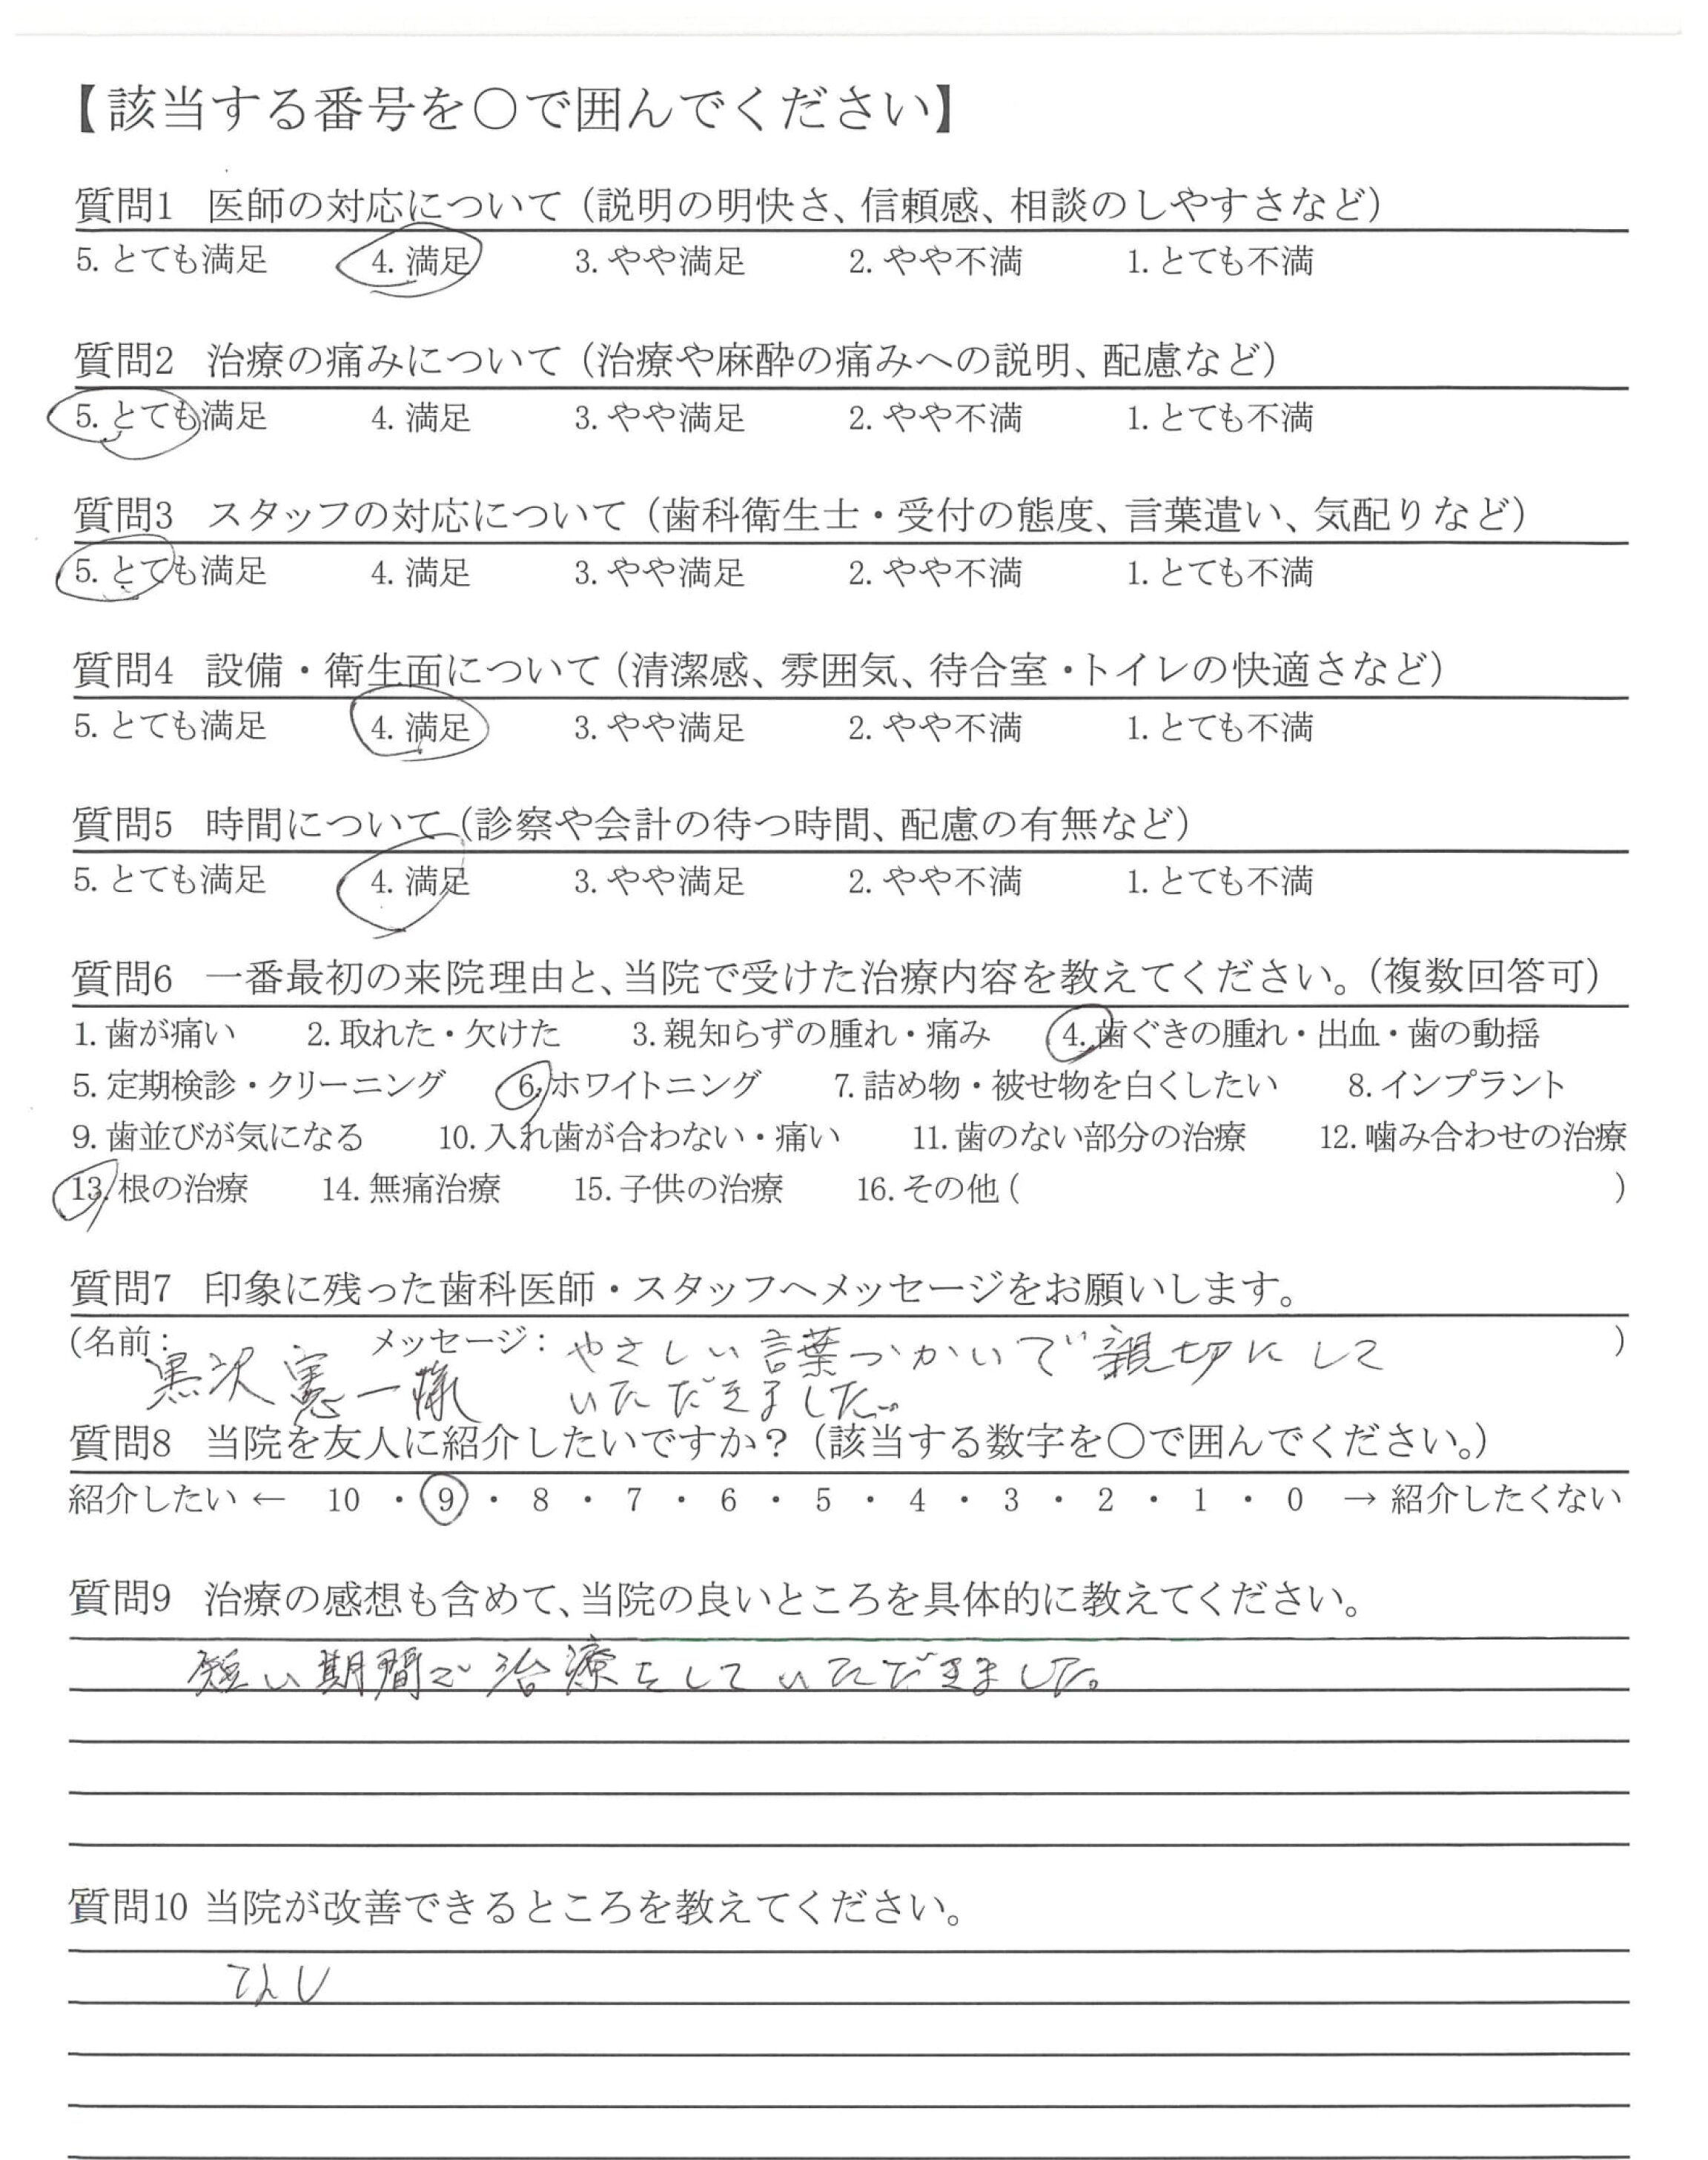 【該当する番号を○で囲んでください】
質問1 医師の対応について（説明の明快さ、信頼感、相談のしやすさなど）
5. とても満足 4. 満足 3. やや満足 2. やや不満 1. とても不満
質問2 治療の痛みについて（治療や麻酔の痛みへの説明、配慮など）
5. とても満足 4. 満足 3. やや満足 2. やや不満 1. とても不満
質問3 スタッフの対応について（歯科衛生士・受付の態度、言葉遣い、気配りなど）
5. とても満足 4. 満足 3. やや満足 2. やや不満 1. とても不満
質問4 設備・衛生面について（清潔感、雰囲気、待合室・トイレの快適さなど）
5. とても満足 4. 満足 3. やや満足 2. やや不満 1. とても不満
質問5 時間について（診察や会計の待つ時間、配慮の有無など）
5. とても満足 4. 満足 3. やや満足 2. やや不満 1. とても不満
質問6 一番最初の来院理由と、当院で受けた治療内容を教えてください。（複数回答可）
1. 歯が痛い 2. 取れた・欠けた 3. 親知らずの腫れ・痛み 4. 歯ぐきの腫れ・出血・歯の動揺
5. 定期検診・クリーニング 6. ホワイトニング 7. 詰め物・被せ物を白くしたい 8. インプラント
9. 歯並びが気になる 10. 入れ歯が合わない・痛い 11. 歯のない部分の治療 12. 噛み合わせの治療
13. 根の治療 14. 無痛治療 15. 子供の治療 16. その他 ( )
質問7 印象に残った歯科医師・スタッフへメッセージをお願いします。
(名前: メッセージ: やさしい言葉つかいで親切にして )
黒沢 憲一様 いただきました。
質問8 当院を友人に紹介したいですか？（該当する数字を○で囲んでください。）
紹介したい ← 10 ・ 9 ・ 8 ・ 7 ・ 6 ・ 5 ・ 4 ・ 3 ・ 2 ・ 1 ・ 0 → 紹介したくない
質問9 治療の感想も含めて、当院の良いところを具体的に教えてください。
短い期間で治療をしていただきました。
質問10 当院が改善できるところを教えてください。
なし